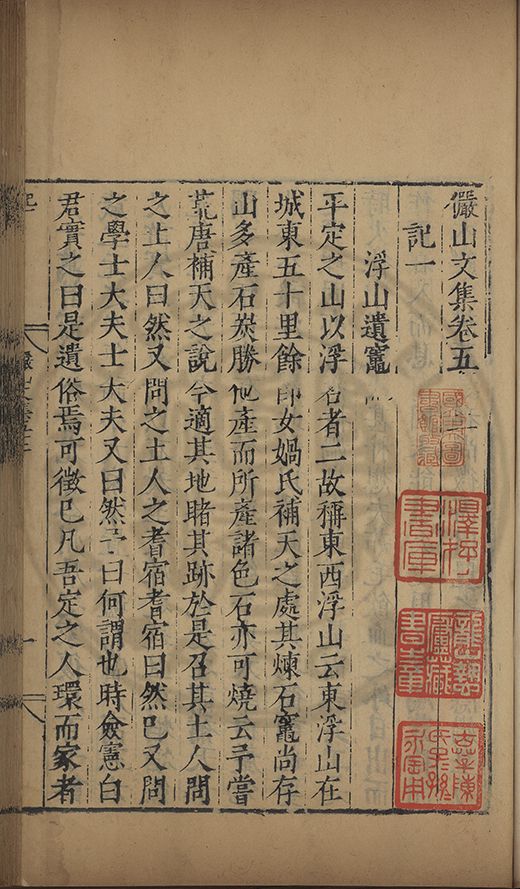 儼山文集卷五
記一
浮山遺竈
平定之山以浮名者二故稱東西浮山云東浮山在
城東五十里餘即女媧氏補天之處其煉石竈尚存
山多產石炭勝他產而所產諸色石亦可燒云予嘗
荒唐補天之說今適其地睹其跡於是召其土人問
之土人曰然又問之土人之耆宿耆宿曰然已又問
之學士大夫士大夫又曰然予曰何謂也時僉憲白
君實之曰是遺俗焉可徵已凡吾定之人環而家者
澤存書庫